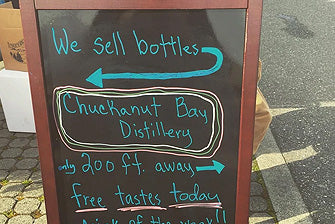 We sell bottles
Chuckanut Bay
Distillery
only 200 ft. away
free tastes today
drink of the week!!